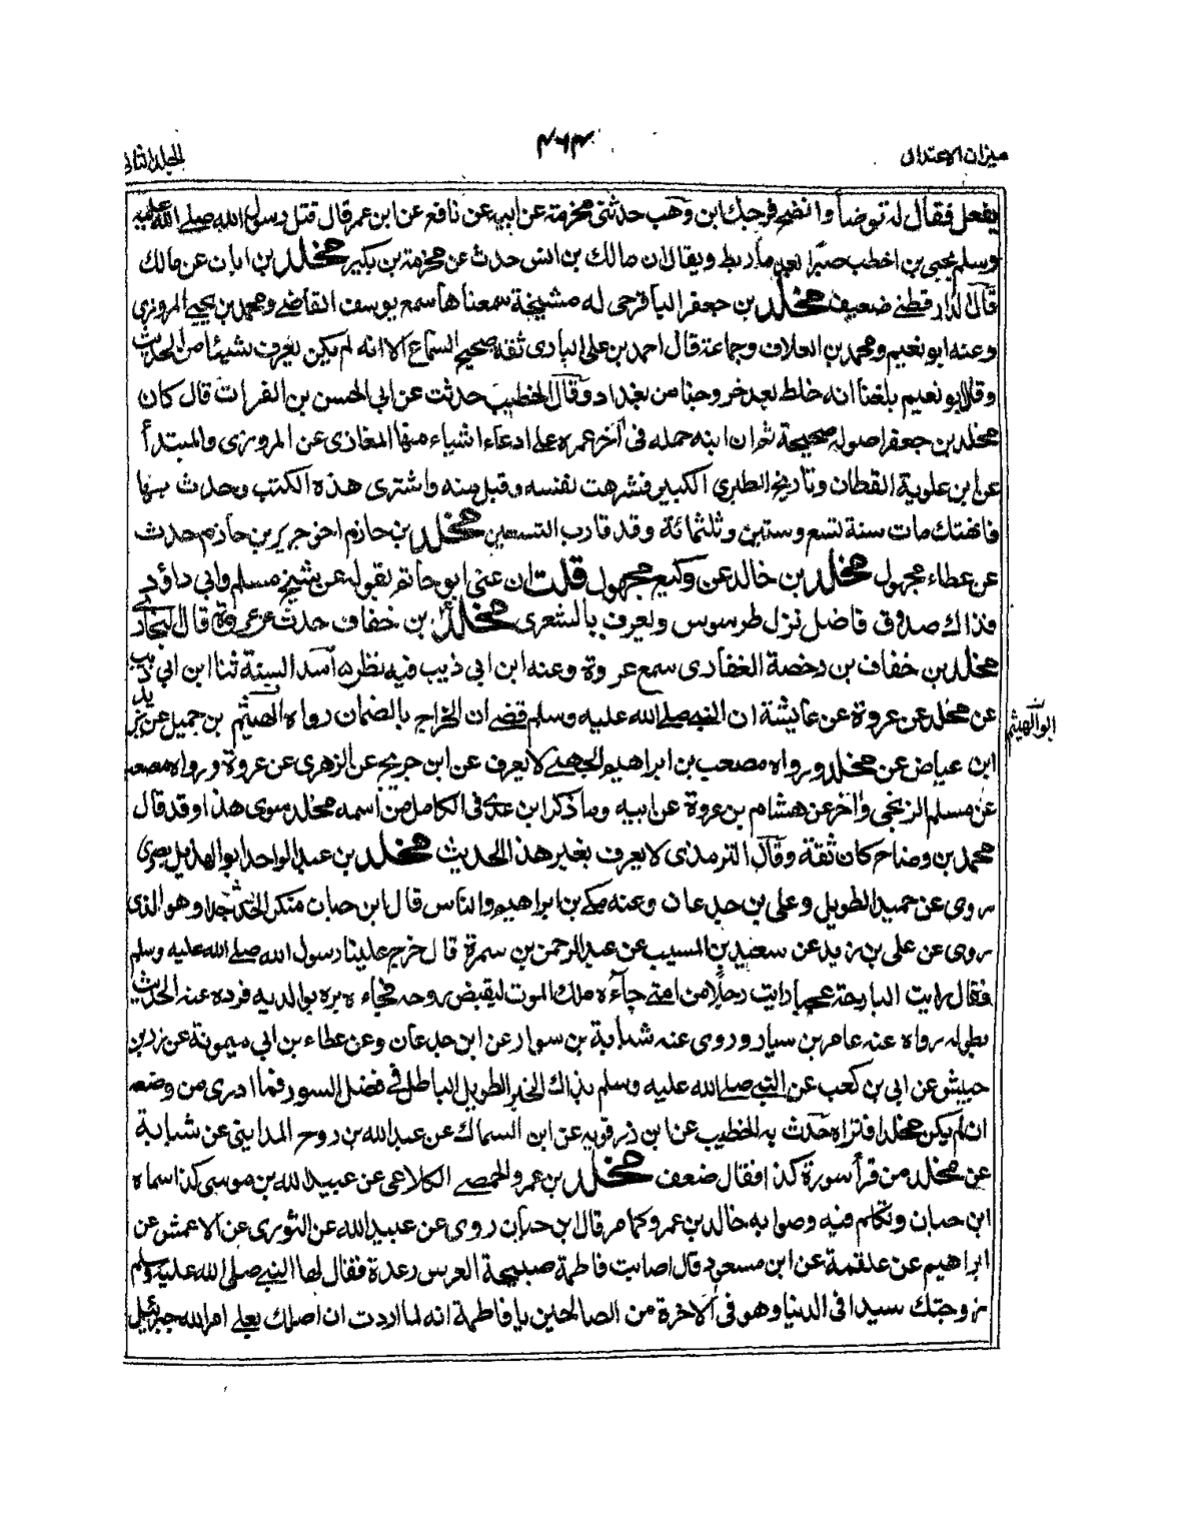 ميزان الاعتدال
٤٦٣
الجلد الثانى
يفعل فقال له توضأ وانضح فرجك ابن وهب حدثنى مخرمة عن ابيه عن نافع عن ابن عمر قال قتل رسول الله صلى الله عليه
وسلم يحيى بن اخطب صبرا بعد ما ربط ويقال ان مالك بن انس حدث عن مخرمة بن بكير مخلد بن ابان عن مالك
قال الدارقطنى ضعيف مخلد بن جعفر الباقرحى له مشيخة سمعناها سمع يوسف القاضى ومحمد بن يحيى المروزى
وعنه ابو نعيم ومحمد بن العلاف وجماعة قال احمد بن على البادى ثقة صحيح السماع الا انه لم يكن يعرف شيئا من الحديث
وقال ابو نعيم بلغنا انه خلط بعد خروجنا من بغداد وقال الخطيب حدثت عن ابى الحسن بن الفرات قال كان
مخلد بن جعفر اصوله صحيحة ثم ان ابنه حمله فى آخر عمره على ادعاء اشياء منها المغازى عن المروزى والمبتدأ
عن ابن علوية القطان وتاريخ الطبرى الكبير فشرهت نفسه وقبل منه واشترى هذه الكتب وحدث بها
فانهتك مات سنة تسع وستين وثلثمائة وقد قارب التسعين مخلد بن حازم اخو جرير بن حازم حدث
عن عطاء مجهول مخلد بن خالد عن وكيع مجهول قلت ان عنى ابو حاتم بقوله عن شيخ مسلم وابى داؤد
فذاك صدوق فاضل نزل طرسوس ويعرف بالشعرى مخلد بن خفاف حدث عن عروة قال البخارى
مخلد بن خفاف بن رخصة الغفارى سمع عروة وعنه ابن ابى ذيب فيه نظر اسد السنة ثنا ابن ابى ذيب
عن مخلد عن عروة عن عايشة ان النبى صلى الله عليه وسلم قضى ان الخراج بالضمان رواه الهيثم بن جميل عن يزيد
ابو الهيثم
ابن عياض عن مخلد ورواه مصعب بن ابراهيم الجهنى لا يعرف عن ابن جريج عن الزهرى عن عروة ورواه مصعب
عن مسلم الزنجى وآخر عن هشام بن عروة عن ابيه وما ذكر ابن عدى فى الكامل من اسمه مخلد سوى هذا وقد قال
محمد بن وضاح كان ثقة وقال الترمذى لا يعرف بغير هذا الحديث مخلد بن عبد الواحد ابو الهذيل بصرى
روى عن حميد الطويل وعلى بن جدعان وعنه مكى بن ابراهيم والناس قال ابن حبان منكر الحديث جدا وهو الذى
روى عن على بن زيد عن سعيد بن المسيب عن عبد الرحمن بن سمرة قال خرج علينا رسول الله صلى الله عليه وسلم
فقال رايت البارحة عجبا رايت رجلا من امتى جآءه ملك الموت ليقبض روحه فجاءه بره بوالديه فرده عنه الحديث
بطوله رواه عنه عامر بن سيار وروى عنه شبابة بن سوار عن ابن جدعان وعن عطاء بن ابى ميمونة عن زر بن
حبيش عن ابى بن كعب عن النبى صلى الله عليه وسلم بذاك الخبر الطويل الباطل فى فضل السور فما ادرى من وضعه
ان لم يكن مخلد افتراه حدث به الخطيب عن ابن زرقويه عن ابن السماك عن عبد الله بن روح المداينى عن شبابة
عن مخلد من قرأ سورة كذا فقال ضعف مخلد بن عمرو الحمصى الكلاعى عن عبيد الله بن موسى كذا سماه
ابن حبان وتكلم فيه وصوابه خالد بن عمرو كما مر قال ابن حبان روى عن عبيد الله عن الثورى عن الاعمش عن
ابراهيم عن علقمة عن ابن مسعود قال اصابت فاطمة صبيحة العرس رعدة فقال لها النبى صلى الله عليه وسلم
زوجتك سيدا فى الدنيا وهو فى الآخرة من الصالحين يا فاطمة انه لما اردت ان املك بعلى امر الله جبرئيل